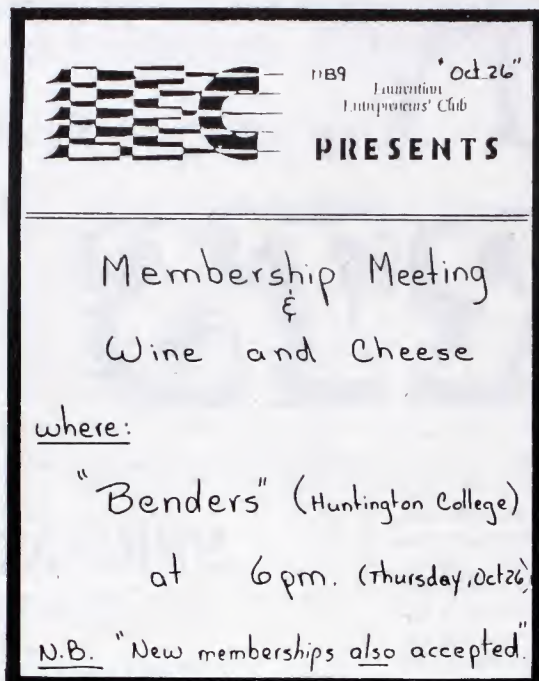 1189 "Oct 26"
Laurentian
Entrepreneurs' Club
PRESENTS
Membership Meeting
&
Wine and Cheese
where:
"Benders" (Huntington College)
at 6 pm. (Thursday, Oct 26)
N.B. "New memberships also accepted."